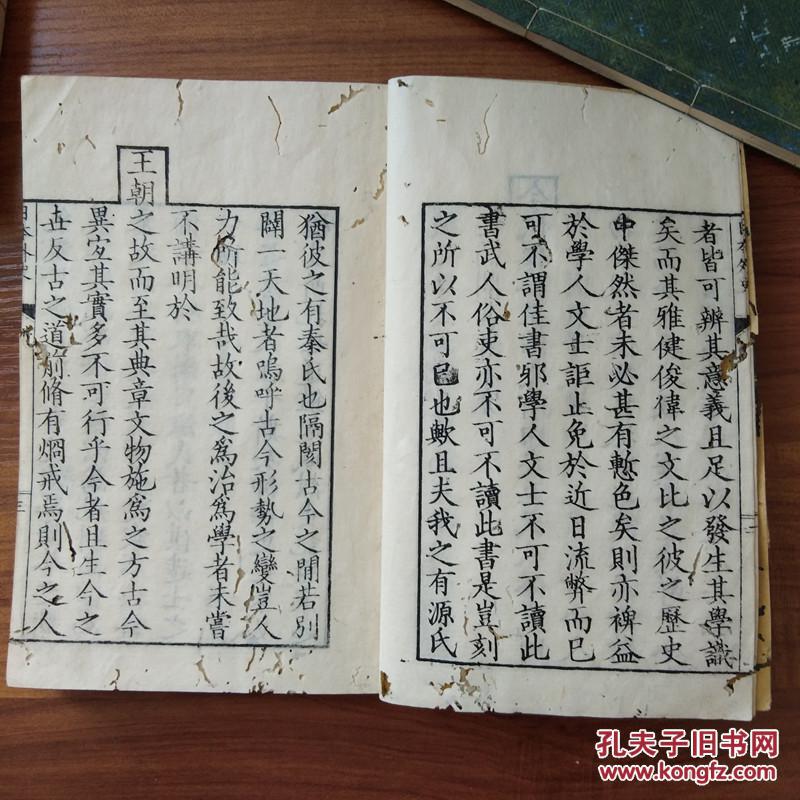 者皆可辨其意義且足以發生其學識
矣而其雅健俊偉之文比之彼之歷史
中傑然者未必甚有慙色矣則亦裨益
於學人文士詎止免於近日流弊而已
可不謂佳書邪學人文士不可不讀此
書武人俗吏亦不可不讀此書是豈刻
之所以不可已也歟且夫我之有源氏
猶彼之有秦氏也隔閡古今之間若別
闢一天地者嗚呼古今形勢之變豈人
力所能致哉故後之爲治爲學者未嘗
不講明於
王朝之故而至其典章文物施爲之方古今
異宜其實多不可行乎今者且生今之
世反古之道前脩有烱戒焉則今之人
日本外史
三
孔夫子旧书网
www.kongfz.com